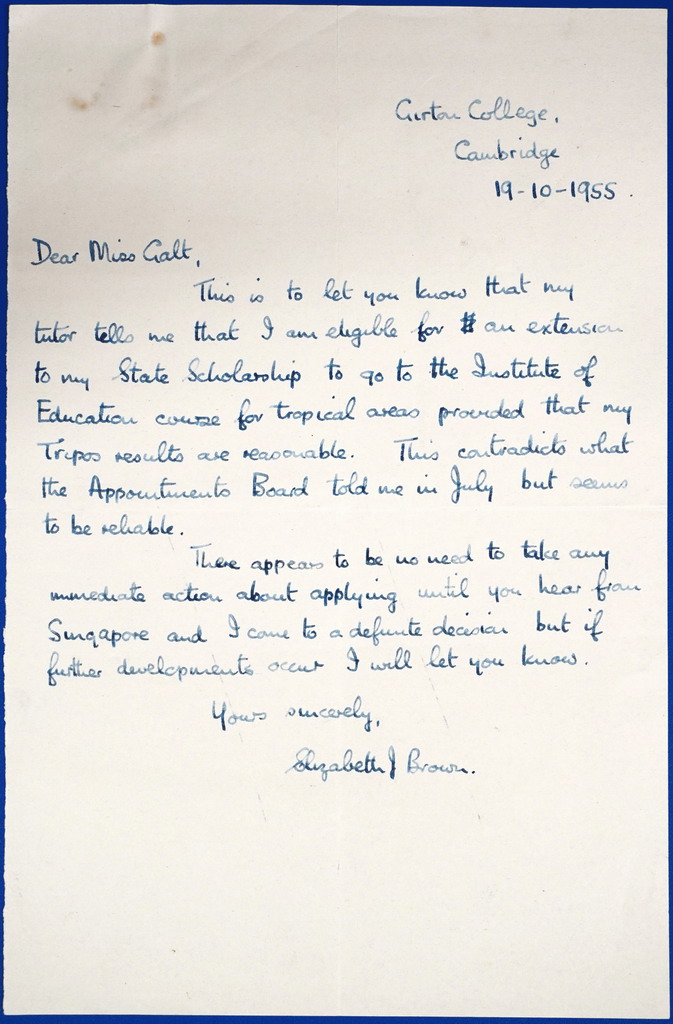 Girton College,
Cambridge
19-10-1955.
Dear Miss Galt,
This is to let you know that my
tutor tells me that I am eligible for an extension
to my State Scholarship to go to the Institute of
Education course for tropical areas provided that my
Tripos results are reasonable. This contradicts what
the Appointments Board told me in July but seems
to be reliable.
There appears to be no need to take any
immediate action about applying until you hear from
Singapore and I come to a definite decision but if
further developments occur I will let you know.
Yours sincerely,
Elizabeth J Brown.